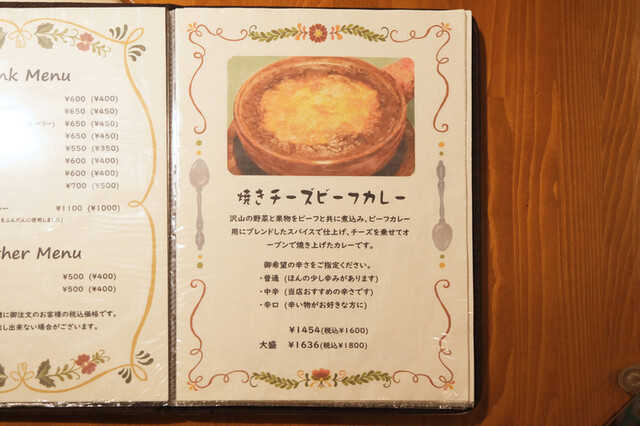 nk Menu
¥600 (¥400)
¥650 (¥450)
ベリー) ¥650 (¥450)
¥650 (¥450)
¥550 (¥350)
¥600 (¥400)
¥600 (¥400)
¥700 (¥500)
¥1100 (¥1000)
ther Menu
¥500 (¥400)
¥500 (¥400)
に御注文のお客様の税込価格です。
出し出来ない場合がございます。
焼きチーズビーフカレー
沢山の野菜と果物をビーフと共に煮込み、ビーフカレー
用にブレンドしたスパイスで仕上げ、チーズを乗せてオ
ーブンで焼き上げたカレーです。
御希望の辛さをご指定ください。
・普通 (ほんの少し辛みがあります)
・中辛 (当店おすすめの辛さです)
・辛口 (辛い物がお好きな方に)
¥1454(税込¥1600)
大盛 ¥1636(税込¥1800)